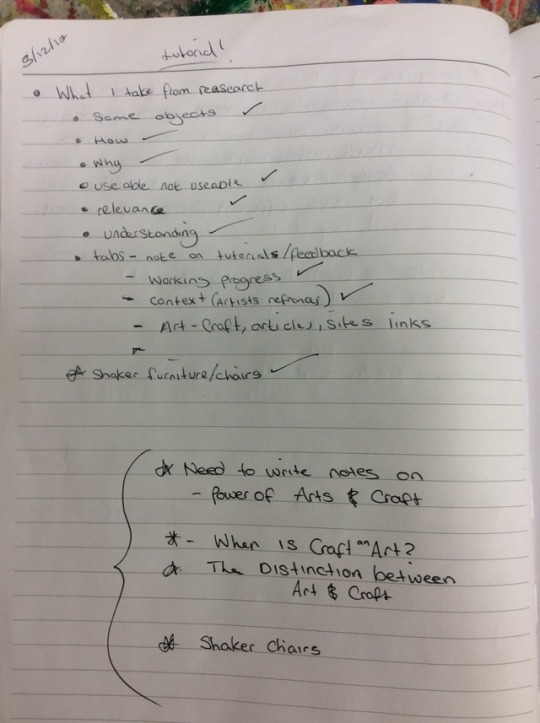 3/12/12
tutorial!
• What I take from reasearch
• Same objects ✓
• How ✓
• Why ✓
• useable not useable ✓
• relevance ✓
• understanding ✓
• tabs - note on tutorials/feedback
- Working progress ✓
- context (Artists refrances) ✓
- Art - Craft, articles, sites links
-
* Shaker furniture/chairs ✓
* Need to write notes on
- Power of Arts & Craft
* - When is Craft an Art?
* The Distinction between
Art & Craft
* Shaker Chairs